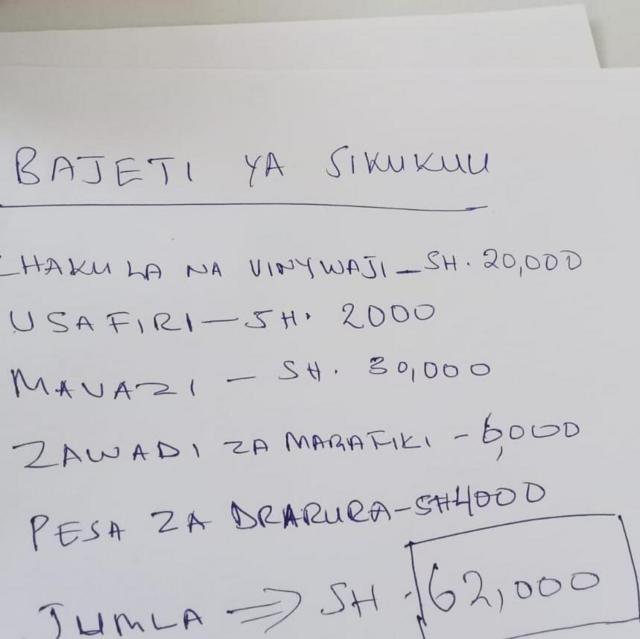 BAJETI YA SIKUKUU
CHAKULA NA VINYWAJI - SH. 20,000
USAFIRI - SH. 2000
MAVAZI - SH. 30,000
ZAWADI ZA MARAFIKI - 6,000
PESA ZA DRARURA - SH4000
JUMLA ⇒ SH. 62,000